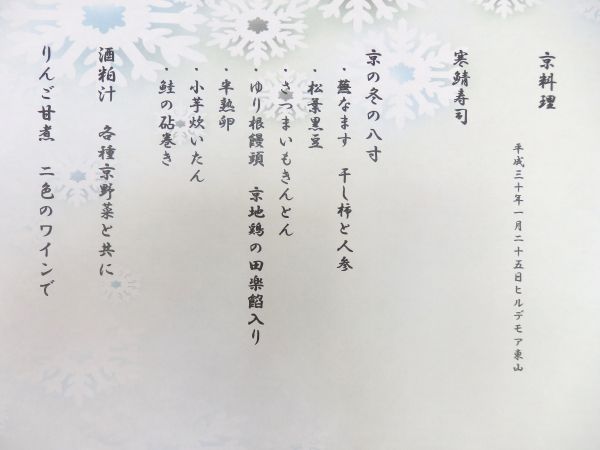 京料理
平成三十年一月二十五日ヒルデモア東山
寒鯖寿司
京の冬の八寸
・蕪なます　干し柿と人参
・松葉黒豆
・さつまいもきんとん
・ゆり根饅頭　京地鶏の田楽餡入り
・半熟卵
・小芋炊いたん
・鮭の砧巻き
酒粕汁　各種京野菜と共に
りんご甘煮　二色のワインで